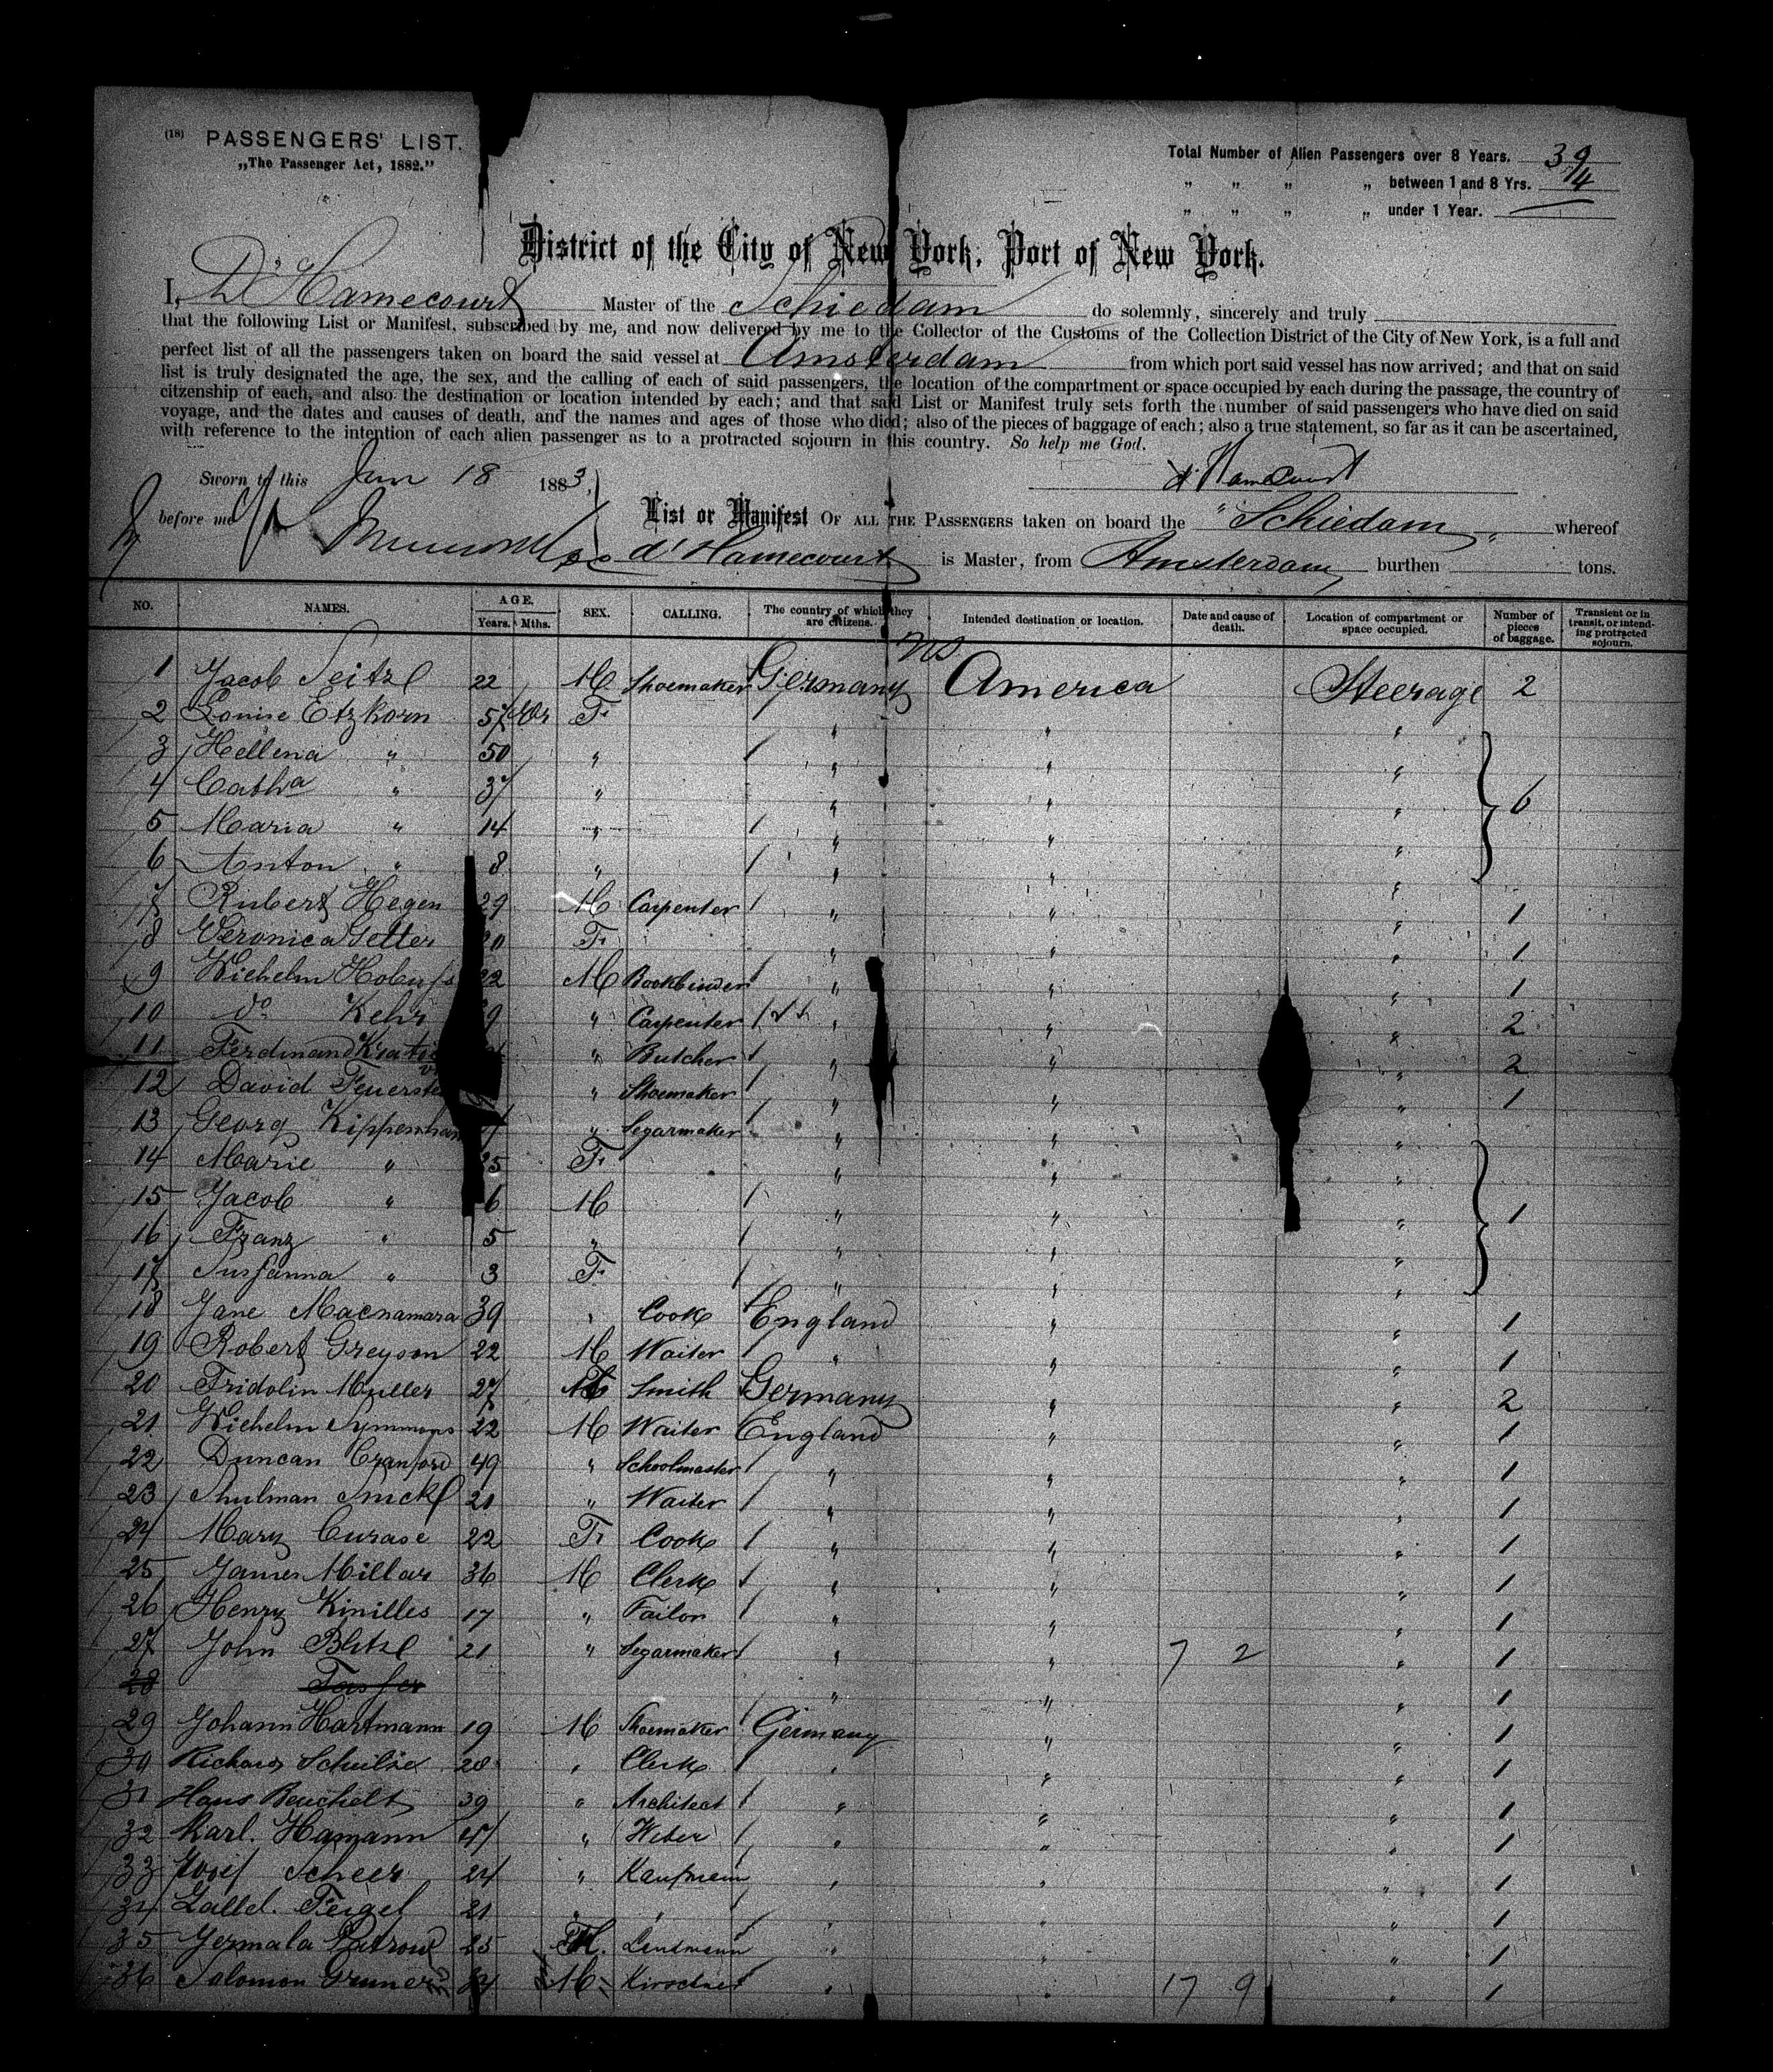 (18) PASSENGERS' LIST.
„The Passenger Act, 1882.”
Total Number of Alien Passengers over 8 Years. 39
„ „ „ „ between 1 and 8 Yrs. 4
„ „ „ „ under 1 Year.
District of the City of New York, Port of New York.
I, D'Hamecourt Master of the Schiedam do solemnly, sincerely and truly
that the following List or Manifest, subscribed by me, and now delivered by me to the Collector of the Customs of the Collection District of the City of New York, is a full and
perfect list of all the passengers taken on board the said vessel at Amsterdam from which port said vessel has now arrived; and that on said
list is truly designated the age, the sex, and the calling of each of said passengers, the location of the compartment or space occupied by each during the passage, the country of
citzenship of each, and also the destination or location intended by each; and that said List or Manifest truly sets forth the number of said passengers who have died on said
voyage, and the dates and causes of death, and the names and ages of those who died; also of the pieces of baggage of each; also a true statement, so far as it can be ascertained,
with reference to the intention of each alien passenger as to a protracted sojourn in this country. So help me God.
Sworn to this Jan 18 1883, d'Hamecourt
before me List or Manifest OF ALL THE PASSENGERS taken on board the "Schiedam" whereof
d'Hamecourt is Master, from Amsterdam burthen tons.
NO. NAMES. AGE. Years. Mths. SEX. CALLING. The country of which they are citizens. Intended destination or location. Date and cause of death. Location of compartment or space occupied. Number of pieces of baggage. Transient or in transit, or intending protracted sojourn.
1 Jacob Seitzl 22 M Shoemaker Germany America Steerage 2
2 Louise Etzkorn 57 F " " "
3 Hellena " 50 " " " "
4 Catha " 37 " " " " 6
5 Maria " 14 " " " "
6 Anton " 8 " " " "
7 Rubert Hegen 29 M Carpenter " " " 1
8 Veronica Getter 20 F " " " 1
9 Wilhelm 22 M Bookbinder " " " 1
10 do Kehr 9 " Carpenter " " " 2
11 Ferdinand " Butcher " " " 2
12 David " Shoemaker " " " 1
13 Georg Kippenhan " Segarmaker " " "
14 Marie " 25 F " " "
15 Jacob " 6 M " " " 1
16 Franz " 5 " " " "
17 Susanna " 3 F " " "
18 Jane Macnamara 39 " Cook England " " 1
19 Robert Greyson 22 M Waiter " " " 1
20 Fridolin Muller 27 M Smith Germany " " 2
21 Wilhelm Symmons 22 M Waiter England " " 1
22 Duncan Cranford 49 " Schoolmaster " " " 1
23 Shulman 21 " Waiter " " " 1
24 Mary Curase 22 F Cook " " " 1
25 James Millar 36 M Clerk " " " 1
26 Henry Kinilles 17 " Tailor " " " 1
27 John Blitzl 21 " Segarmaker " " 7 2 " 1
28 " " " 1
29 Johann Hartmann 19 M Shoemaker Germany " " 1
30 Richard Schulze 28 " Clerk " " " 1
31 Hans Beuchelt 39 " Architect " " " 1
32 Karl. Hamann 47 " Weber " " " 1
33 Josef Scheer 24 " Kaufmann " " " 1
34 Feigel 21 " " " " " 1
35 25 Landmann " " " 1
36 Salomon Gruner M Kirschner " " 17 9 " 1